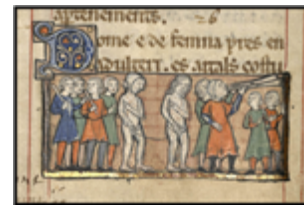 aptenemens.
Dome e de femna pres en
adulteri. es aitals costu